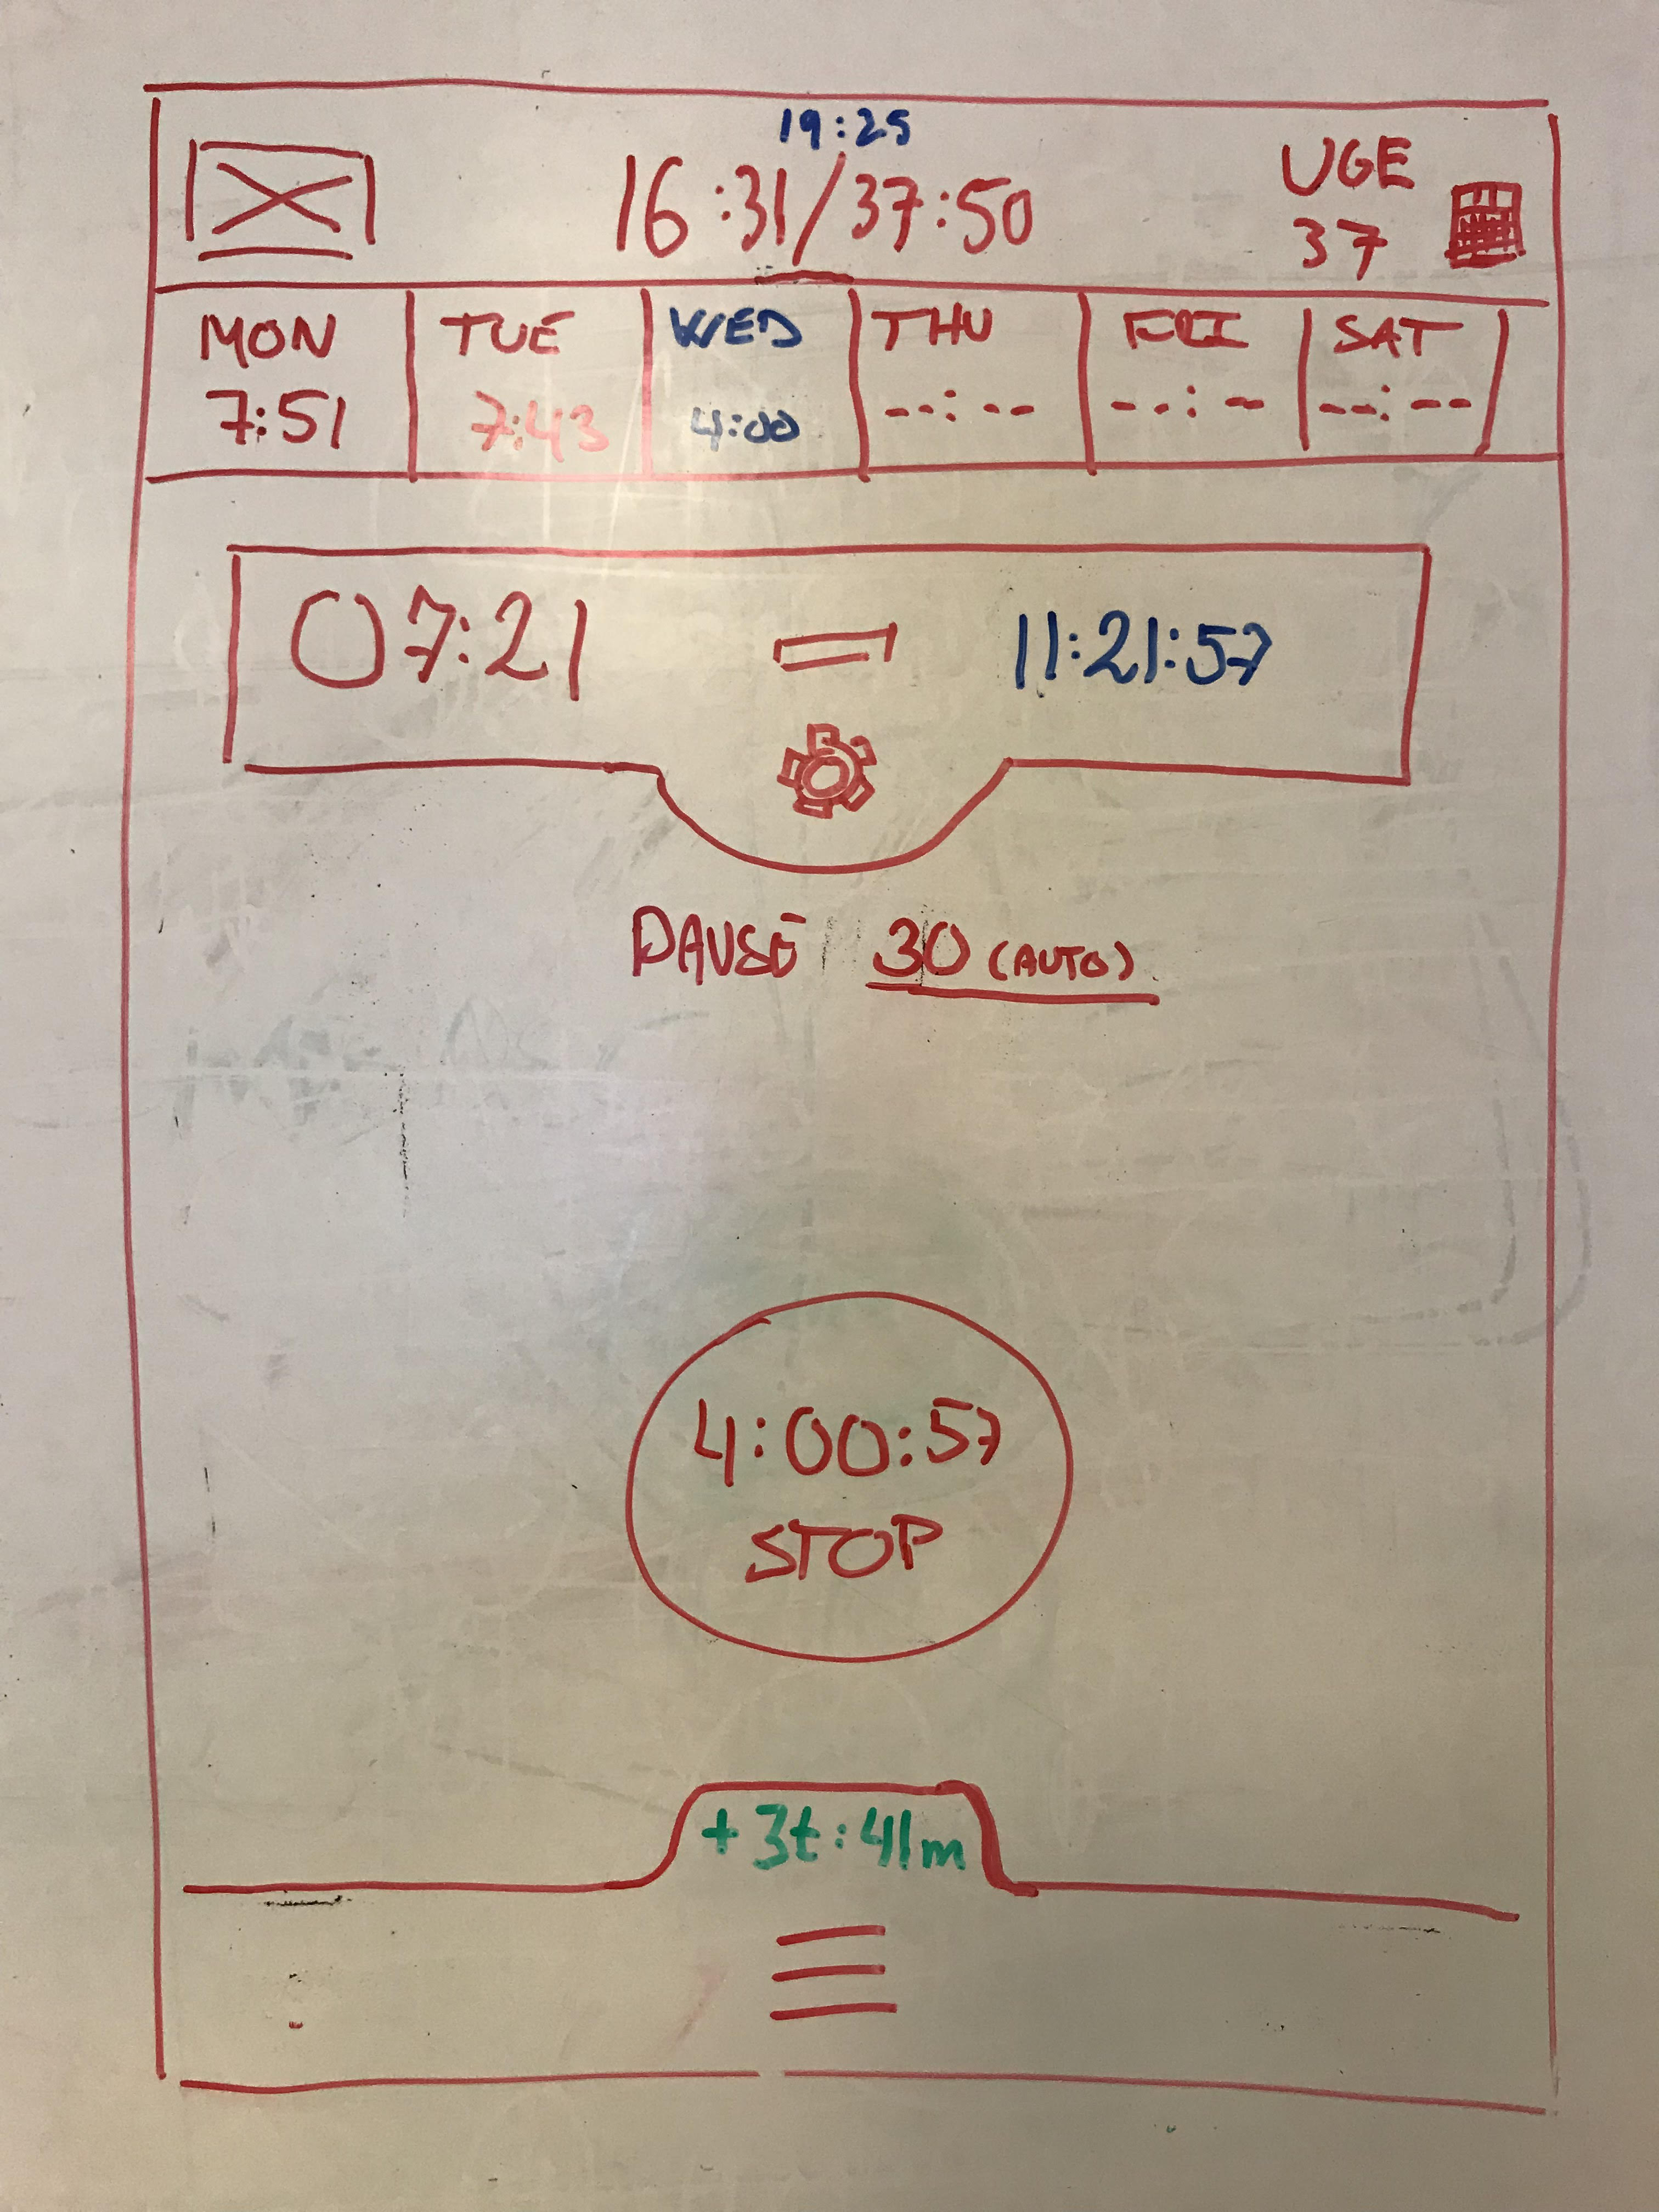 19:25
16:31/37:50
UGE
37
MON TUE WED THU FRI SAT
7:51 7:43 4:00 --:-- --:-- --:--
07:21 - 11:21:57
PAUSE 30 (AUTO)
4:00:57
STOP
+3t:41m